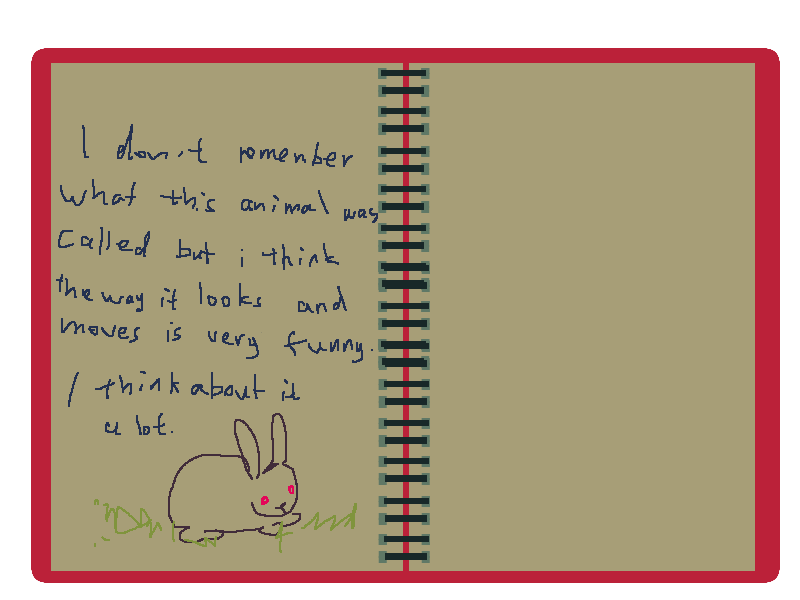 I don't remember
what this animal was
called but i think
the way it looks and
moves is very funny.
I think about it
a lot.